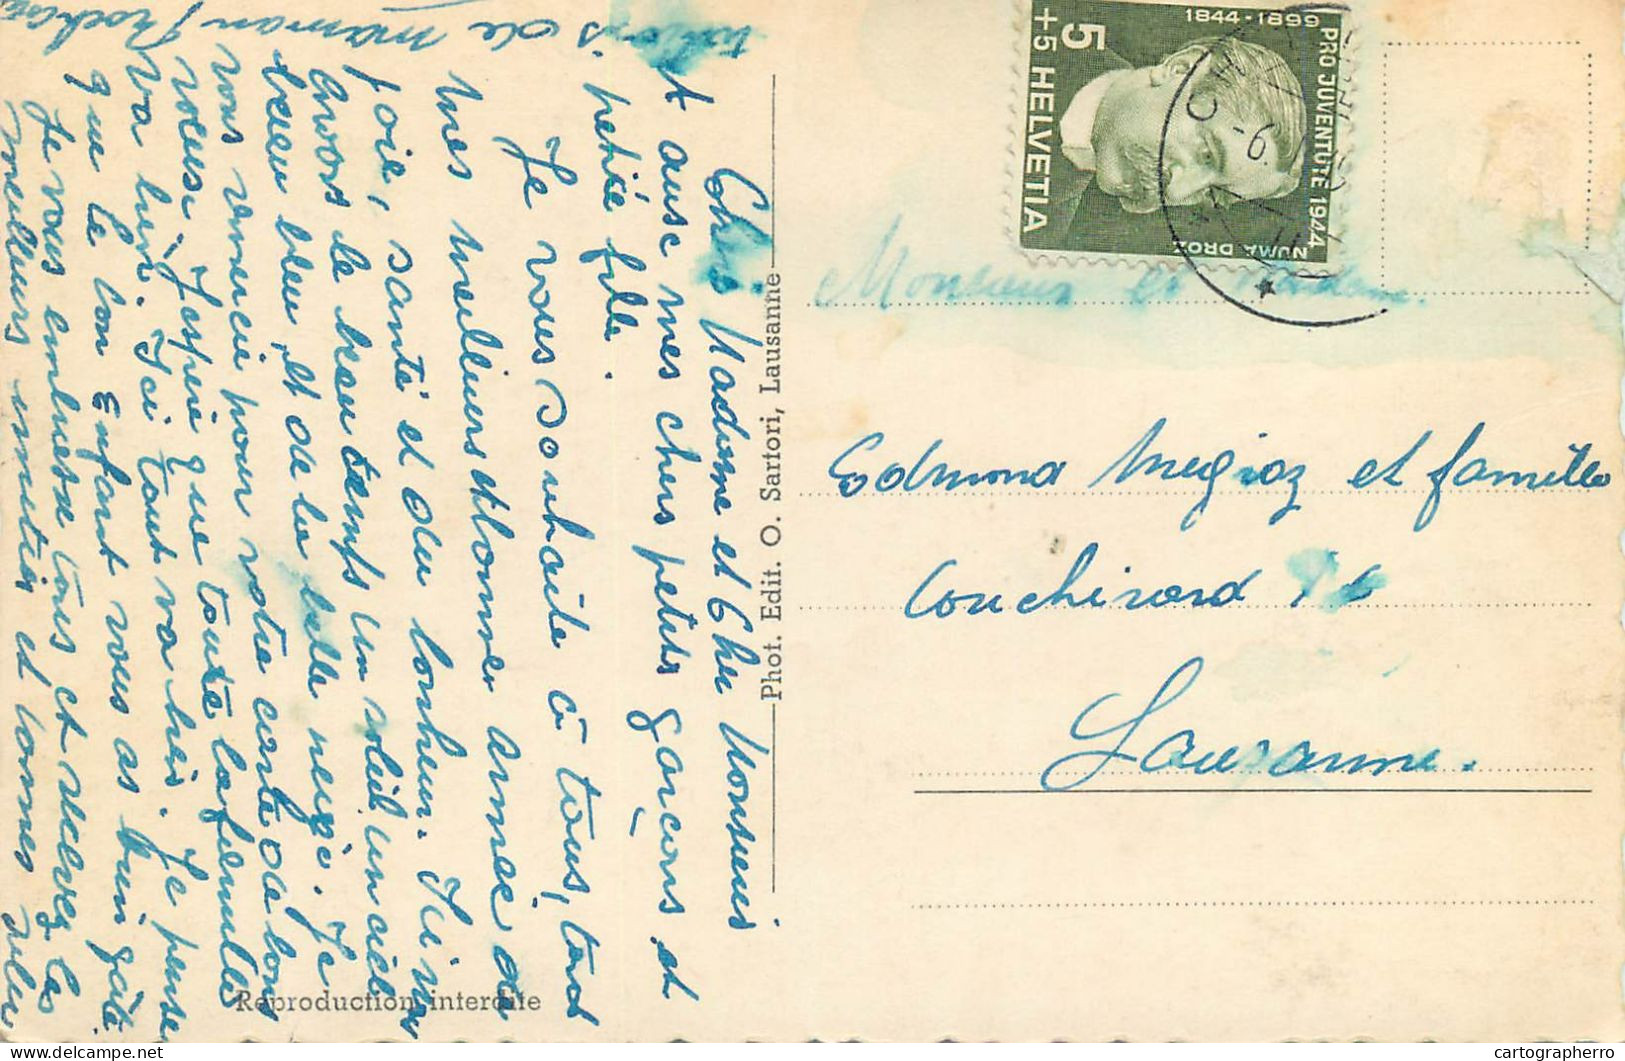 Chère Madame et Cher Monsieur
et ausse mes chers petits garçons et
petite fille.
Je vous souhaite à tous, tout
mes meilleurs et bonner année de
joie, santé et du bonheur. Ici nou
avvons le beau temps un soleil un ciel
bleu et de la belle neige. Je
vous remercie pour votre carte de bons
voeux. J'espère que toute la famille
va bien. Ici tout va bien. Je pense
que le bon Enfant vous as bien gâté
Je vous embrasse tous et recevez les
meilleurs amitiés et bonnes
de maman
Phot. Edit. O. Sartori, Lausanne
Reproduction interdite
PRO JUVENTUTE 1944
1844-1899
5
+5 HELVETIA
NUMA DROZ
-6.
Monsieur et Madame.
Edmond Megroz et famille
Couchirard
Lausanne.
cartographerro